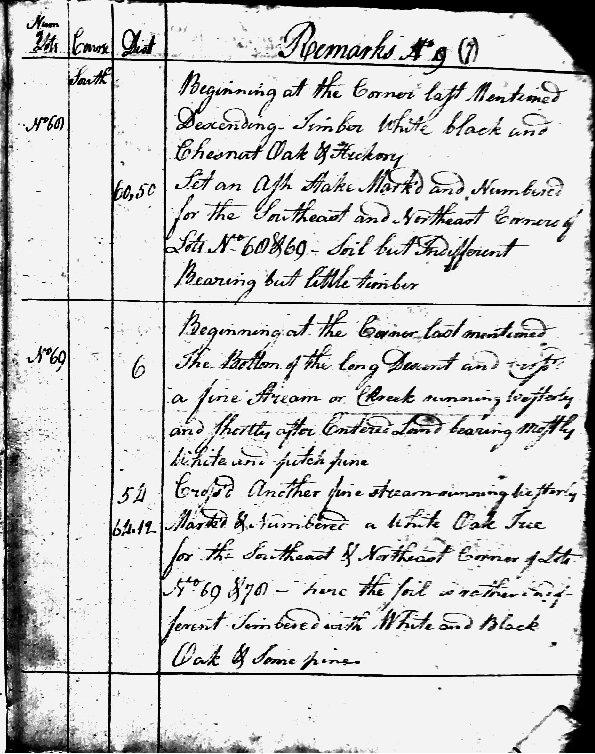 Num Lots Cours Dist Remarks No 9 (7)
South
Beginning at the Corner last Mentioned
No 68 Descending - Timber White black and
Chesnut Oak & Hickory
60,50 Set an Ash Stake Mark'd and Numbered
for the Southeast and Northeast Corners of
Lots No 68 & 69 - Soil but Indifferent
Bearing but little timber
Beginning at the Corner last mentioned
No 69 6 The Bottom of the long Descent and
a fine Stream or Creek running westerly
and shortly after Entered Land bearing mostly
White and pitch pine
54 Cross'd Another fine stream running westerly
64.12 Mark'd & Numbered a White Oak Tree
for the Southeast & Northeast Corner of Lots
No 69 & 70 - here the soil is rather indif-
ferent Timbered with White and Black
Oak & Some pine